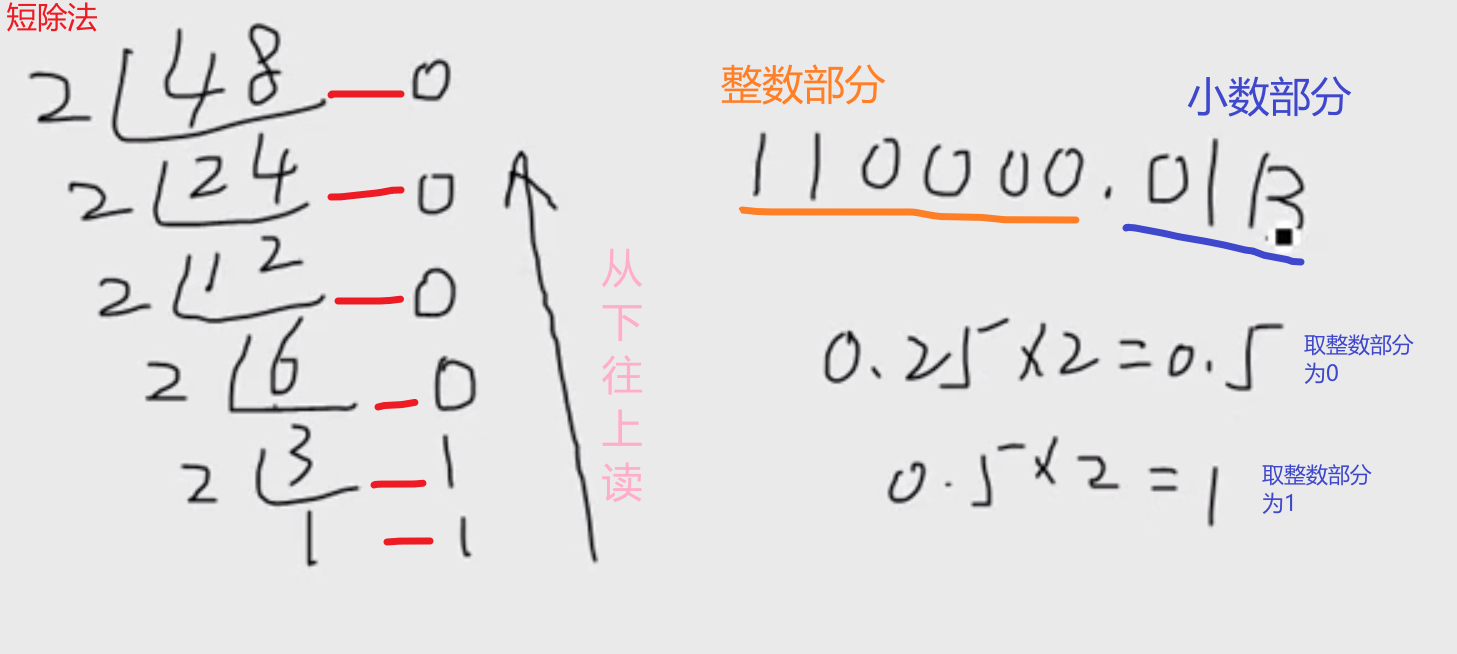 短除法
2 48 — 0
2 24 — 0
2 12 — 0
2 6 — 0
2 3 — 1
1 — 1
从下往上读
整数部分
小数部分
110000.01B
0.25×2=0.5
取整数部分
为0
0.5×2=1
取整数部分
为1